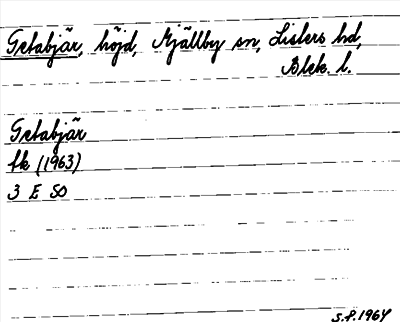 Getabjär, höjd, Mjällby sn, Listers hd,
Blek. l.
Getabjär
fk (1963)
3 E SO
S.F. 1964